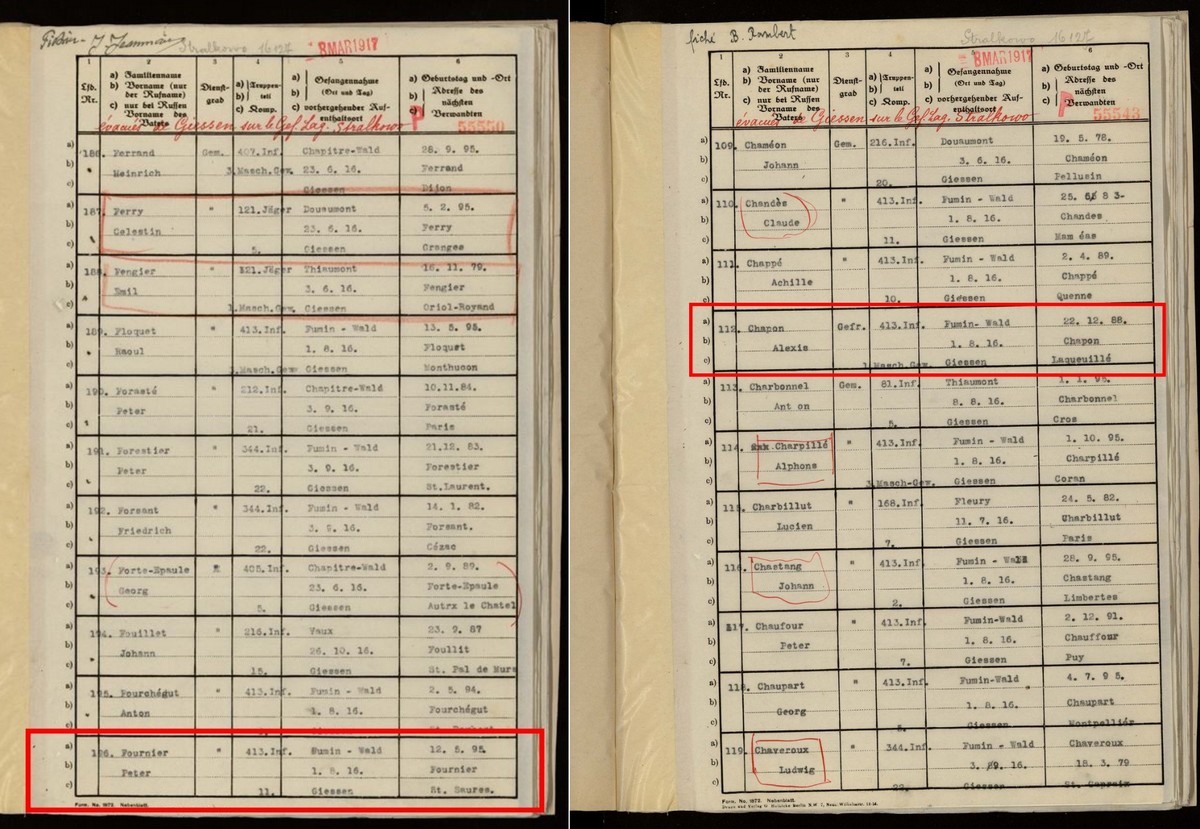 Stralkowo 16127
8 MAR 1917
1
2
3
4
5
6
Lfd. Nr.
a) Familienname
b) Vorname (nur der Rufname)
c) nur bei Russen Vorname des Vaters
Dienstgrad
a) Truppenteil
b)
c) Komp.
a) Gefangennahme
b) (Ort und Tag)
c) vorhergehender Aufenthaltsort
a) Geburtstag und -Ort
b) Adresse des nächsten
c) Verwandten
évacués de Giessen sur le Gef Lag. Stralkowo
P
55550
186. Ferrand Gem. 407.Inf. Chapitre-Wald 28. 9. 95.
Heinrich 3.Masch.Gew. 23. 6. 16. Ferrand
Giessen Dijon
187. Ferry " 121.Jäger Douaumont 5. 2. 95.
Celestin 23. 6. 16. Ferry
5. Giessen Granges
188. Fengier " 121.Jäger Thiaumont 16. 11. 79.
Emil 3. 6. 16. Fengier
1.Masch.Gew. Giessen Oriol-Royand
189. Floquet " 413.Inf. Fumin - Wald 13. 5. 95.
Raoul 1. 8. 16. Floquet
3.Masch.Gew Giessen Monthucon
190. Forasté " 212.Inf. Chapitre-Wald 10.11.84.
Peter 3. 9. 16. Forasté
21. Giessen Paris
191. Forestier " 344.Inf. Fumin - Wald 21.12. 83.
Peter 3. 9. 16. Forestier
22. Giessen St.Laurent.
192. Forsant " 344.Inf. Fumin - Wald 14. 1. 82.
Friedrich 3. 9. 16. Forsant.
22. Giessen Cézac
193. Forte-Epaule 405.Inf. Chapitre-Wald 2. 9. 89.
Georg 23. 6. 16. Forte-Epaule
5. Giessen Autrx le Chatel
194. Fouillet " 216.Inf. Vaux 23. 9. 87
Johann 26. 10. 16. Foullit
15. Giessen St. Pal de Murs
195. Fourchégut " 413.Inf. Fumin - Wald 2. 5. 94.
Anton 1. 8. 16. Fourchégut
Giessen
196. Fournier " 413.Inf. Fumin - Wald 12. 5. 95.
Peter 1. 8. 16. Fournier
11. Giessen St. Saures.
Form. No. 1672. Nebenblatt.
fiché B. Rambert
Stralkowo 16127
8 MAR 1917
1
2
3
4
6
Lfd. Nr.
a) Familienname
b) Vorname (nur der Rufname)
c) nur bei Russen Vorname des Vaters
Dienstgrad
a) Truppenteil
b)
c) Komp.
a) Gefangennahme
b) (Ort und Tag)
c) vorhergehender Aufenthaltsort
a) Geburtstag und -Ort
b) Adresse des nächsten
c) Verwandten
évacués de Giessen sur le Gef Lag. Stralkowo
P
55543
109. Chaméon Gem. 216.Inf. Douaumont 19. 5. 78.
Johann 3. 6. 16. Chaméon
20. Giessen Pellusin
110. Chandès " 413.Inf. Fumin - Wald 25. 8 3-
Claude 1. 8. 16. Chandes
11. Giessen Mam éas
111. Chappé " 413.Inf. Fumin - Wald 2. 4. 89.
Achille 1. 8. 16. Chappé
10. Giessen Quenne
112. Chapon Gefr. 413.Inf. Fumin- Wald 22. 12. 88.
Alexis 1. 8. 16. Chapon
1.Masch.Gew. Giessen Laqueuillé
113. Charbonnel Gem. 81.Inf. Thiaumont 1. 1. 95.
Ant on 8. 8. 16. Charbonnel
5. Giessen Cros
114. Charpillé " 413.Inf. Fumin - Wald 1. 10. 95.
Alphons 1. 8. 16. Charpillé
3.Masch-Gew. Giessen Coran
115. Charbillut " 168.Inf. Fleury 24. 5. 82.
Lucien 11. 7. 16. Charbillut
7. Giessen Paris
116. Chastang " 413.Inf. Fumin - Wald 28. 9. 95.
Johann 1. 8. 16. Chastang
2. Giessen Limbertes
117. Chaufour " 413.Inf. Fumin-Wald 2. 12. 91.
Peter 1. 8. 16. Chauffour
7. Giessen Puy
118. Chaupart " 413.Inf. Fumin-Wald 4. 7. 9 5.
Georg 1. 8. 16. Chaupart
Giessen Montpelliér
119. Chaveroux " 344.Inf. Fumin - Wald Chaveroux
Ludwig 3. 9. 16. 18. 3. 79
22. Giessen St. Caprais
Form. No. 1672. Nebenblatt.